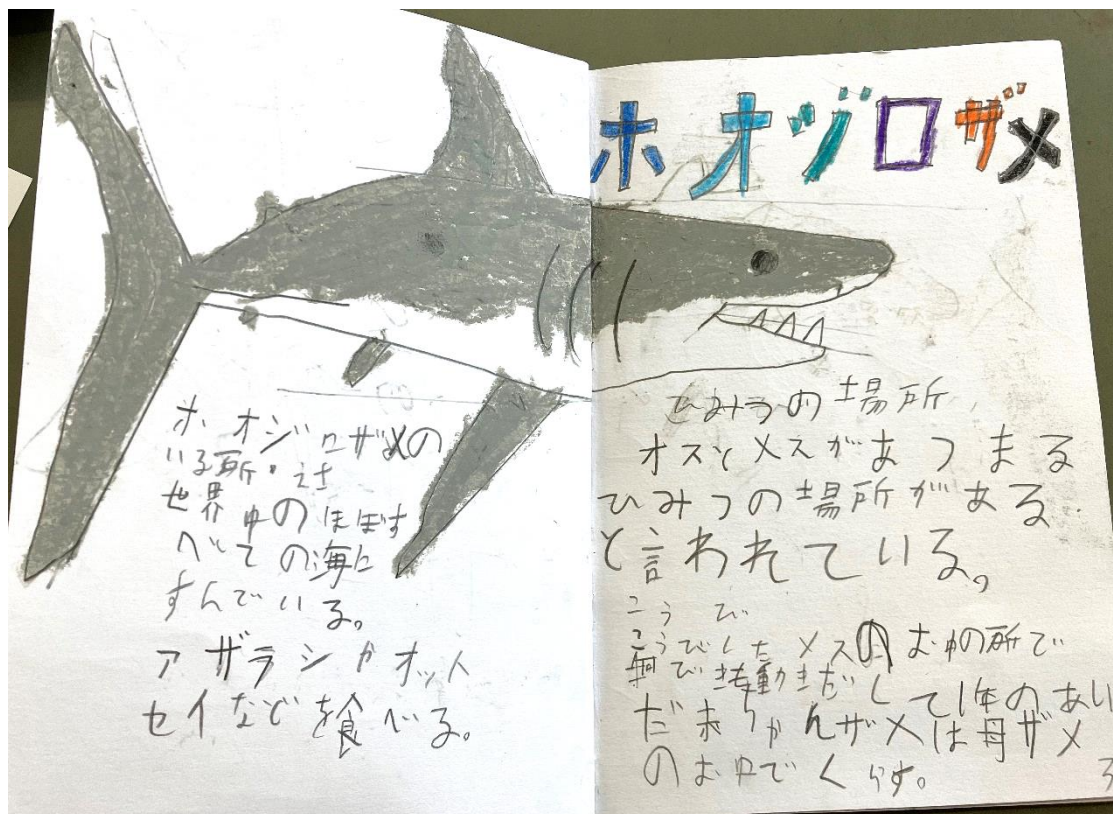 ホオジロザメ
ホオジロザメの
いる所・えさ
世界中のほぼす
べての海に
すんでいる。
アザラシやオット
セイなどを食べる。
ひみつの場所
オスとメスがあつまる
ひみつの場所がある
と言われている。
こうび
こうびしたメスのお中の所で
動きだして1年のあい
だ赤ちゃんザメは母ザメ
のお中でくらす。